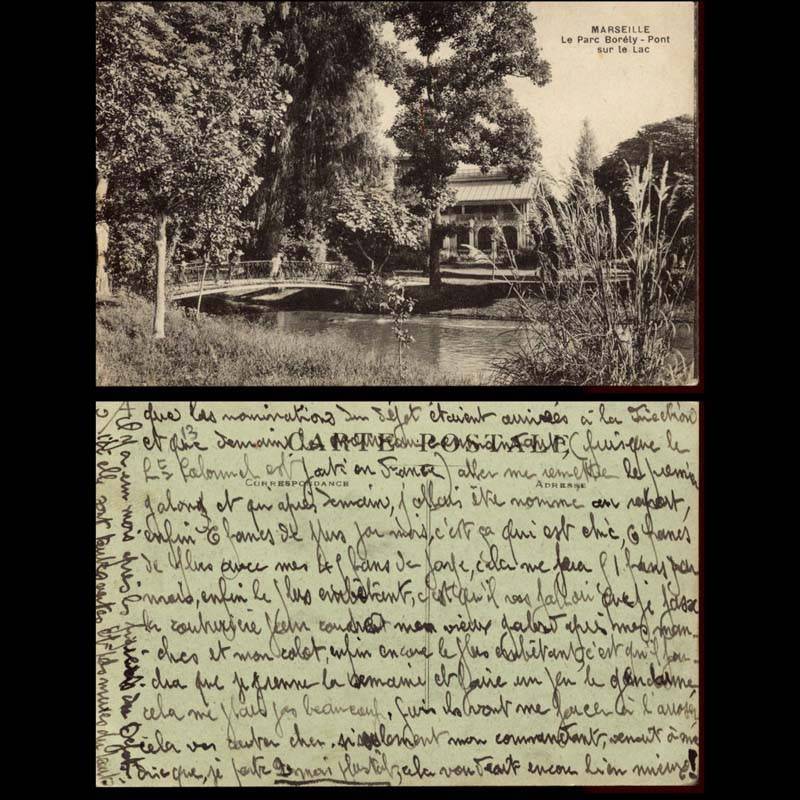 MARSEILLE
Le Parc Borély - Pont
sur le Lac
que les nominations du dépôt étaient arrivées à la Direction
et que demain le commandant, (puisque le
CARTE POSTALE
13
Lt Colonel est parti en France) aller me remettre le premier
CORRESPONDANCE
ADRESSE
galon, et qu'après demain, j'allais être nommé au rapport,
enfin 6 francs de plus par mois, c'est ça qui est chic, 6 francs
de plus avec mes francs de cela me fera francs par
mois, enfin le plus embêtant, c'est qu'il va falloir que je fasse
la couturière pour coudre mon vieux galon après mes man-
ches et mon calot, enfin encore le plus embêtant c'est qu'il fau-
dra que je prenne la semaine et faire un peu le gendarme
cela me plaît pas beaucoup, puis ils vont me forcer à l'arroser
cela va couter cher. si seulement mon commandant, venait à me
dire que, je parte 2 mois plus tôt, cela vaudrait encore bien mieux!
Il y a un mois que les du Dépôt
sont toutes